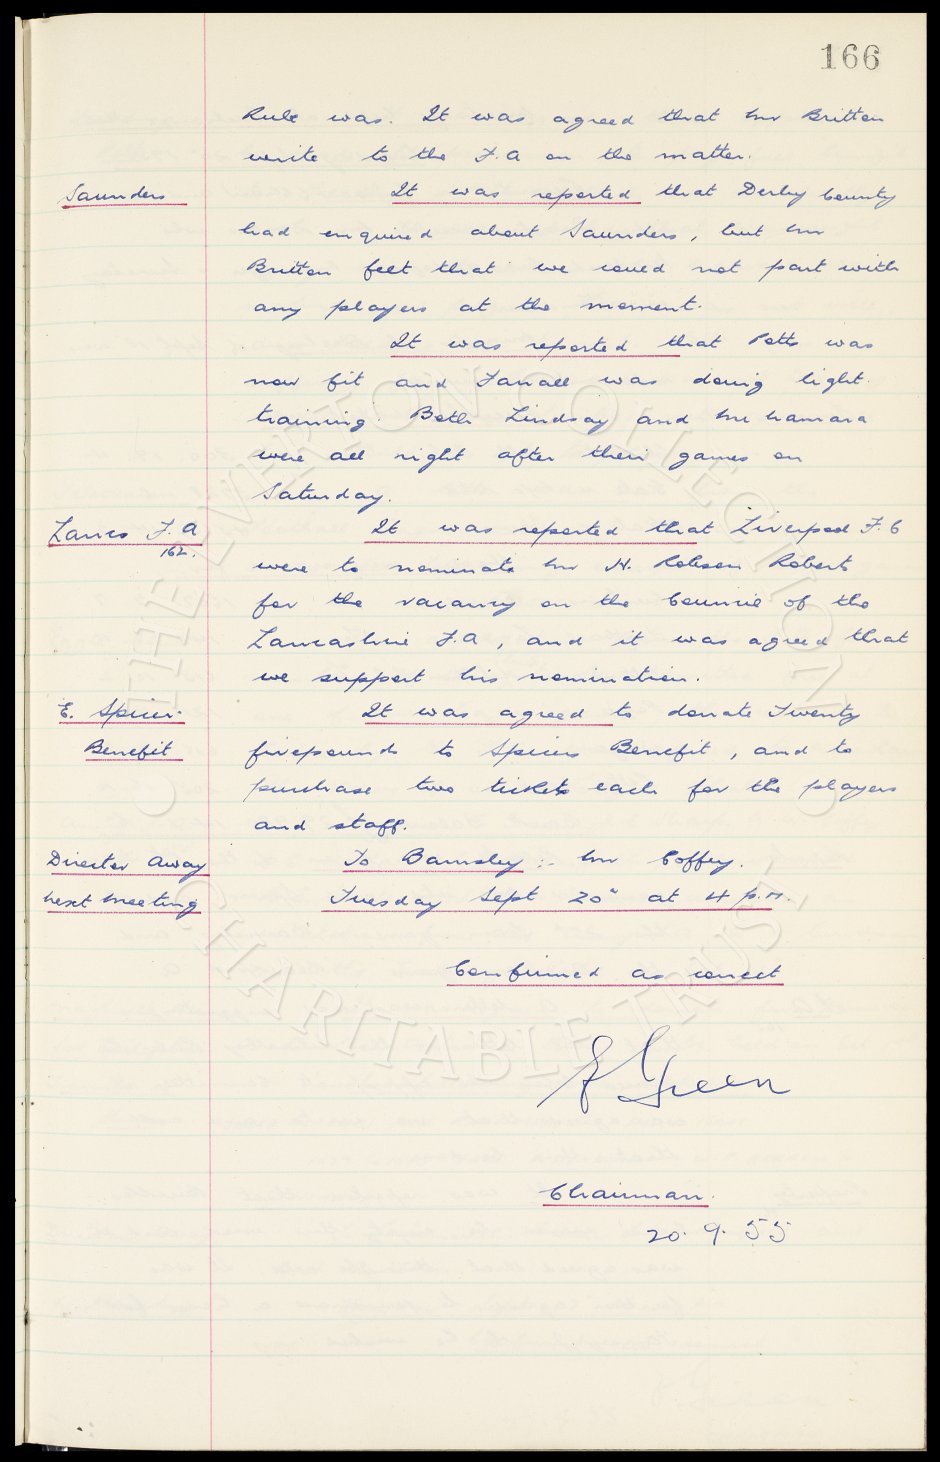 166
Rule was. It was agreed that Mr Britton
write to the F.A on the matter.
Saunders
It was reported that Derby County
had enquired about Saunders, but Mr
Britton felt that we could not part with
any players at the moment.
It was reported that Potts was
now fit and Farrall was doing light
training. Both Lindsay and McNamara
were all right after their games on
Saturday.
Lancs F.A
162.
It was reported that Liverpool F.C
were to nominate Mr H. Robson Roberts
for the vacancy on the Council of the
Lancashire F.A, and it was agreed that
we support his nomination.
E. Spicer.
Benefit
It was agreed to donate Twenty
fivepounds to Spicers Benefit, and to
purchase two tickets each for the players
and staff.
Director Away
To Barnsley :- Mr Coffey.
Next Meeting
Tuesday Sept 20" at 4 p.m.
Confirmed as correct
E Green
Chairman.
20. 9. 55
THE EVERTON COLLECTION
CHARITABLE TRUST